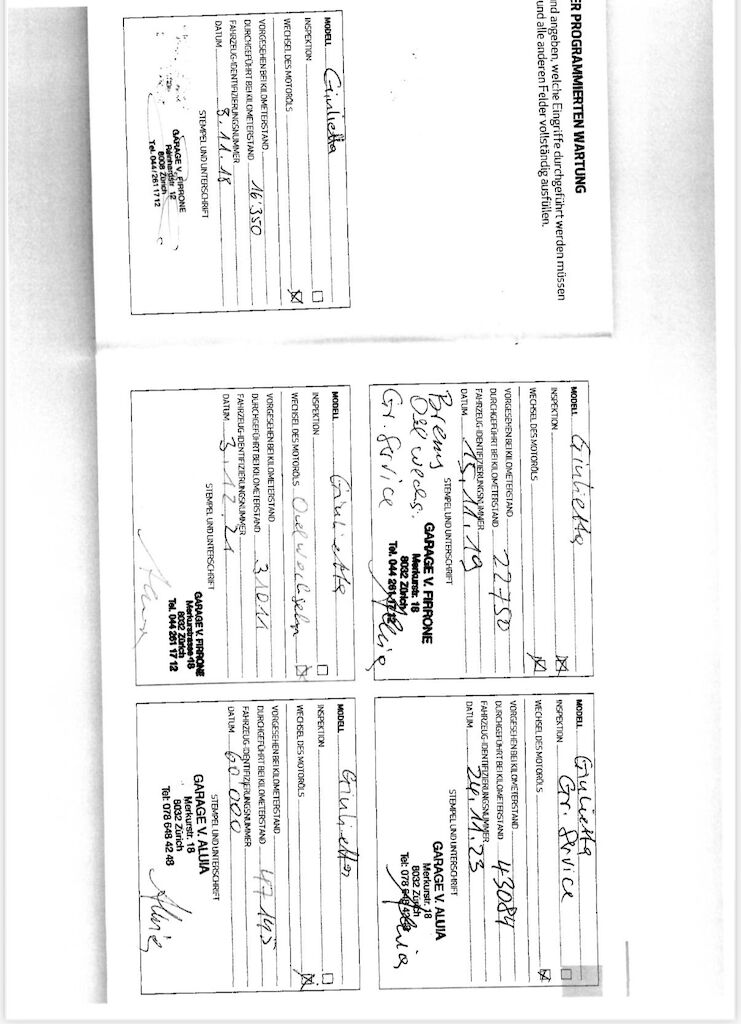 ER PROGRAMMIERTEN WARTUNG
nd angeben, welche Eingriffe durchgeführt werden müssen
und alle anderen Felder vollständig ausfüllen.
MODELL Giulietta
INSPEKTION
WECHSEL DES MOTORÖLS
VORGESEHEN BEI KILOMETERSTAND
DURCHGEFÜHRT BEI KILOMETERSTAND 22750
FAHRZEUG-IDENTIFIZIERUNGSNUMMER
DATUM 15.11.19
STEMPEL UND UNTERSCHRIFT
Oelwechs.
Gr. Service
GARAGE V. FIRRONE
Merkurstr. 18
8032 Zürich
Tel. 044 261 17 12
MODELL Giulietta
Gr. Service
INSPEKTION
WECHSEL DES MOTORÖLS
VORGESEHEN BEI KILOMETERSTAND
DURCHGEFÜHRT BEI KILOMETERSTAND 43084
FAHRZEUG-IDENTIFIZIERUNGSNUMMER
DATUM 24.11.23
STEMPEL UND UNTERSCHRIFT
GARAGE V. ALUIA
Merkurstr. 18
8032 Zürich
Tel: 078 648 42 48
MODELL Giulietta
INSPEKTION
WECHSEL DES MOTORÖLS
VORGESEHEN BEI KILOMETERSTAND
DURCHGEFÜHRT BEI KILOMETERSTAND 16'350
FAHRZEUG-IDENTIFIZIERUNGSNUMMER
DATUM 8.11.18
STEMPEL UND UNTERSCHRIFT
GARAGE V. FIRRONE
Reinhardstr. 12
8008 Zürich
Tel. 044/261 17 12
MODELL Giulietta
INSPEKTION
WECHSEL DES MOTORÖLS Oelwechseln
VORGESEHEN BEI KILOMETERSTAND
DURCHGEFÜHRT BEI KILOMETERSTAND 31011
FAHRZEUG-IDENTIFIZIERUNGSNUMMER
DATUM 3.12.21
STEMPEL UND UNTERSCHRIFT
GARAGE V. FIRRONE
Merkurstrasse 18
8032 Zürich
Tel. 044 261 17 12
MODELL Giulietta
INSPEKTION
WECHSEL DES MOTORÖLS
VORGESEHEN BEI KILOMETERSTAND
DURCHGEFÜHRT BEI KILOMETERSTAND 47145
FAHRZEUG-IDENTIFIZIERUNGSNUMMER
DATUM 60.000
STEMPEL UND UNTERSCHRIFT
GARAGE V. ALUIA
Merkurstr. 18
8032 Zürich
Tel: 078 648 42 48